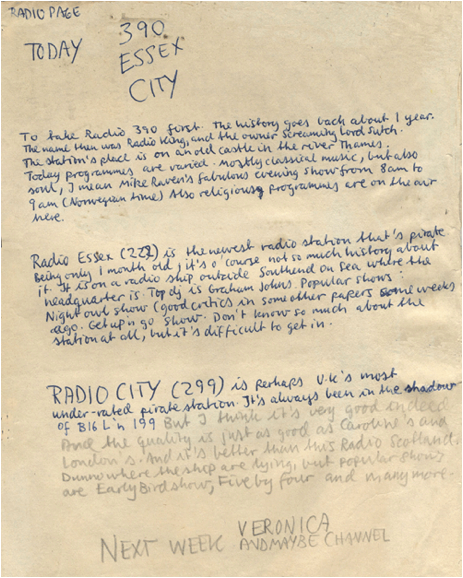 RADIO PAGE
TODAY 390
ESSEX
CITY
To take Radio 390 first. The history goes back about 1 year.
The name then was Radio King, and the owner Screaming Lord Sutch.
The station's place is on an old castle in the river Thames.
Today programmes are varied. Mostly classical music, but also
soul, I mean Mike Raven's fabulous evening show from 8am to
9am (Norwegian time) Also religious programmes are on the air
here.
Radio Essex (222) is the newest radio station that's pirate
Being only 1 month old, it's o' course not so much history about
it. It is on a radio ship outside Southend on Sea where the
headquarter is. Top dj is Graham Johns. Popular shows:
Night owl show (good critics in some other papers some weeks
ago. Get up'n go Show. Don't know so much about the
station at all, but it's difficult to get in.
RADIO CITY (299) is perhaps U.k's most
under-rated pirate station. It's always been in the shadow
of BIG L'n 199 But I think it's very good indeed
And the quality is just as good as Caroline's and
London's. And it's better than this Radio Scotland.
Dunno where the ship are lying, but popular shows
are Early Bird show, Five by four and many more.
NEXT WEEK VERONICA
AND MAYBE CHANNEL